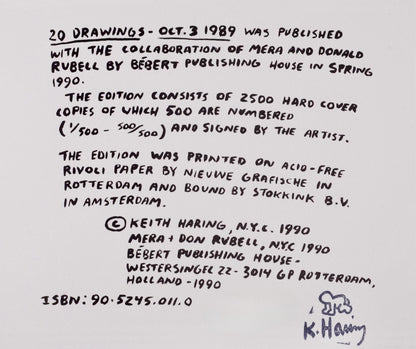 20 DRAWINGS - OCT. 3 1989 WAS PUBLISHED
WITH THE COLLABORATION OF MERA AND DONALD
RUBELL BY BÉBERT PUBLISHING HOUSE IN SPRING
1990.
THE EDITION CONSISTS OF 2500 HARD COVER
COPIES OF WHICH 500 ARE NUMBERED
(1/500 - 500/500) AND SIGNED BY THE ARTIST.
THE EDITION WAS PRINTED ON ACID-FREE
RIVOLI PAPER BY NIEUWE GRAFISCHE IN
ROTTERDAM AND BOUND BY STOKKINK B.V.
IN AMSTERDAM.
© KEITH HARING, N.Y.C. 1990
MERA + DON RUBELL, NYC 1990
BÉBERT PUBLISHING HOUSE -
WESTERSINGEL 22 - 3014 GP ROTTERDAM,
HOLLAND - 1990
ISBN: 90.5245.011.0
K. Haring